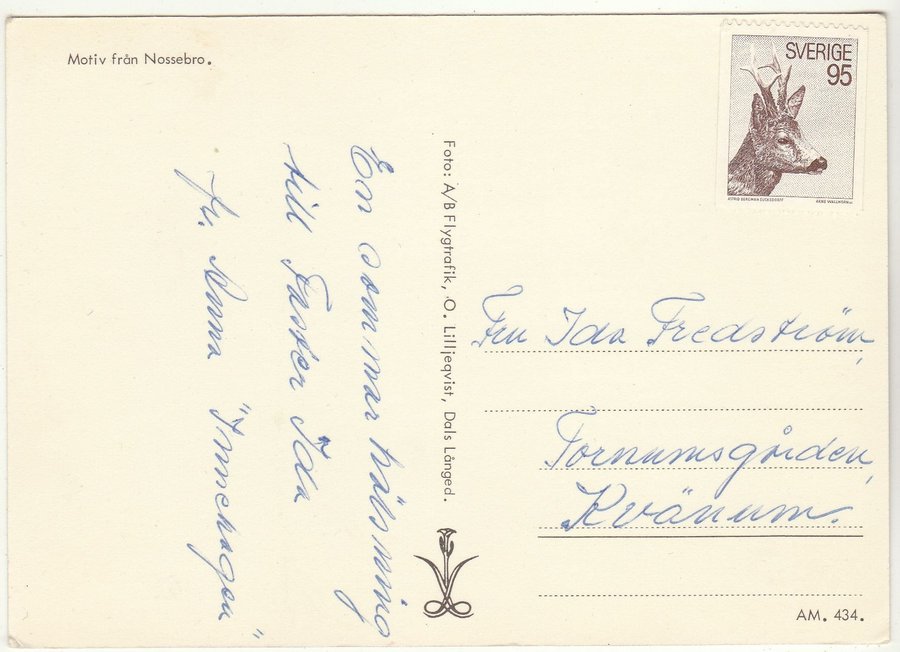 Motiv från Nossebro.
SVERIGE
95
ASTRID BERGMAN SUCKSDORFF
ARNE WALLHORN
En sommarhälsning
till Faster Ida
fr. Anna
Foto: A/B Flygtrafik, O. Lilljeqvist, Dals Långed.
Fru Ida Fredström,
Tornumsgården,
Kvänum.
AM. 434.